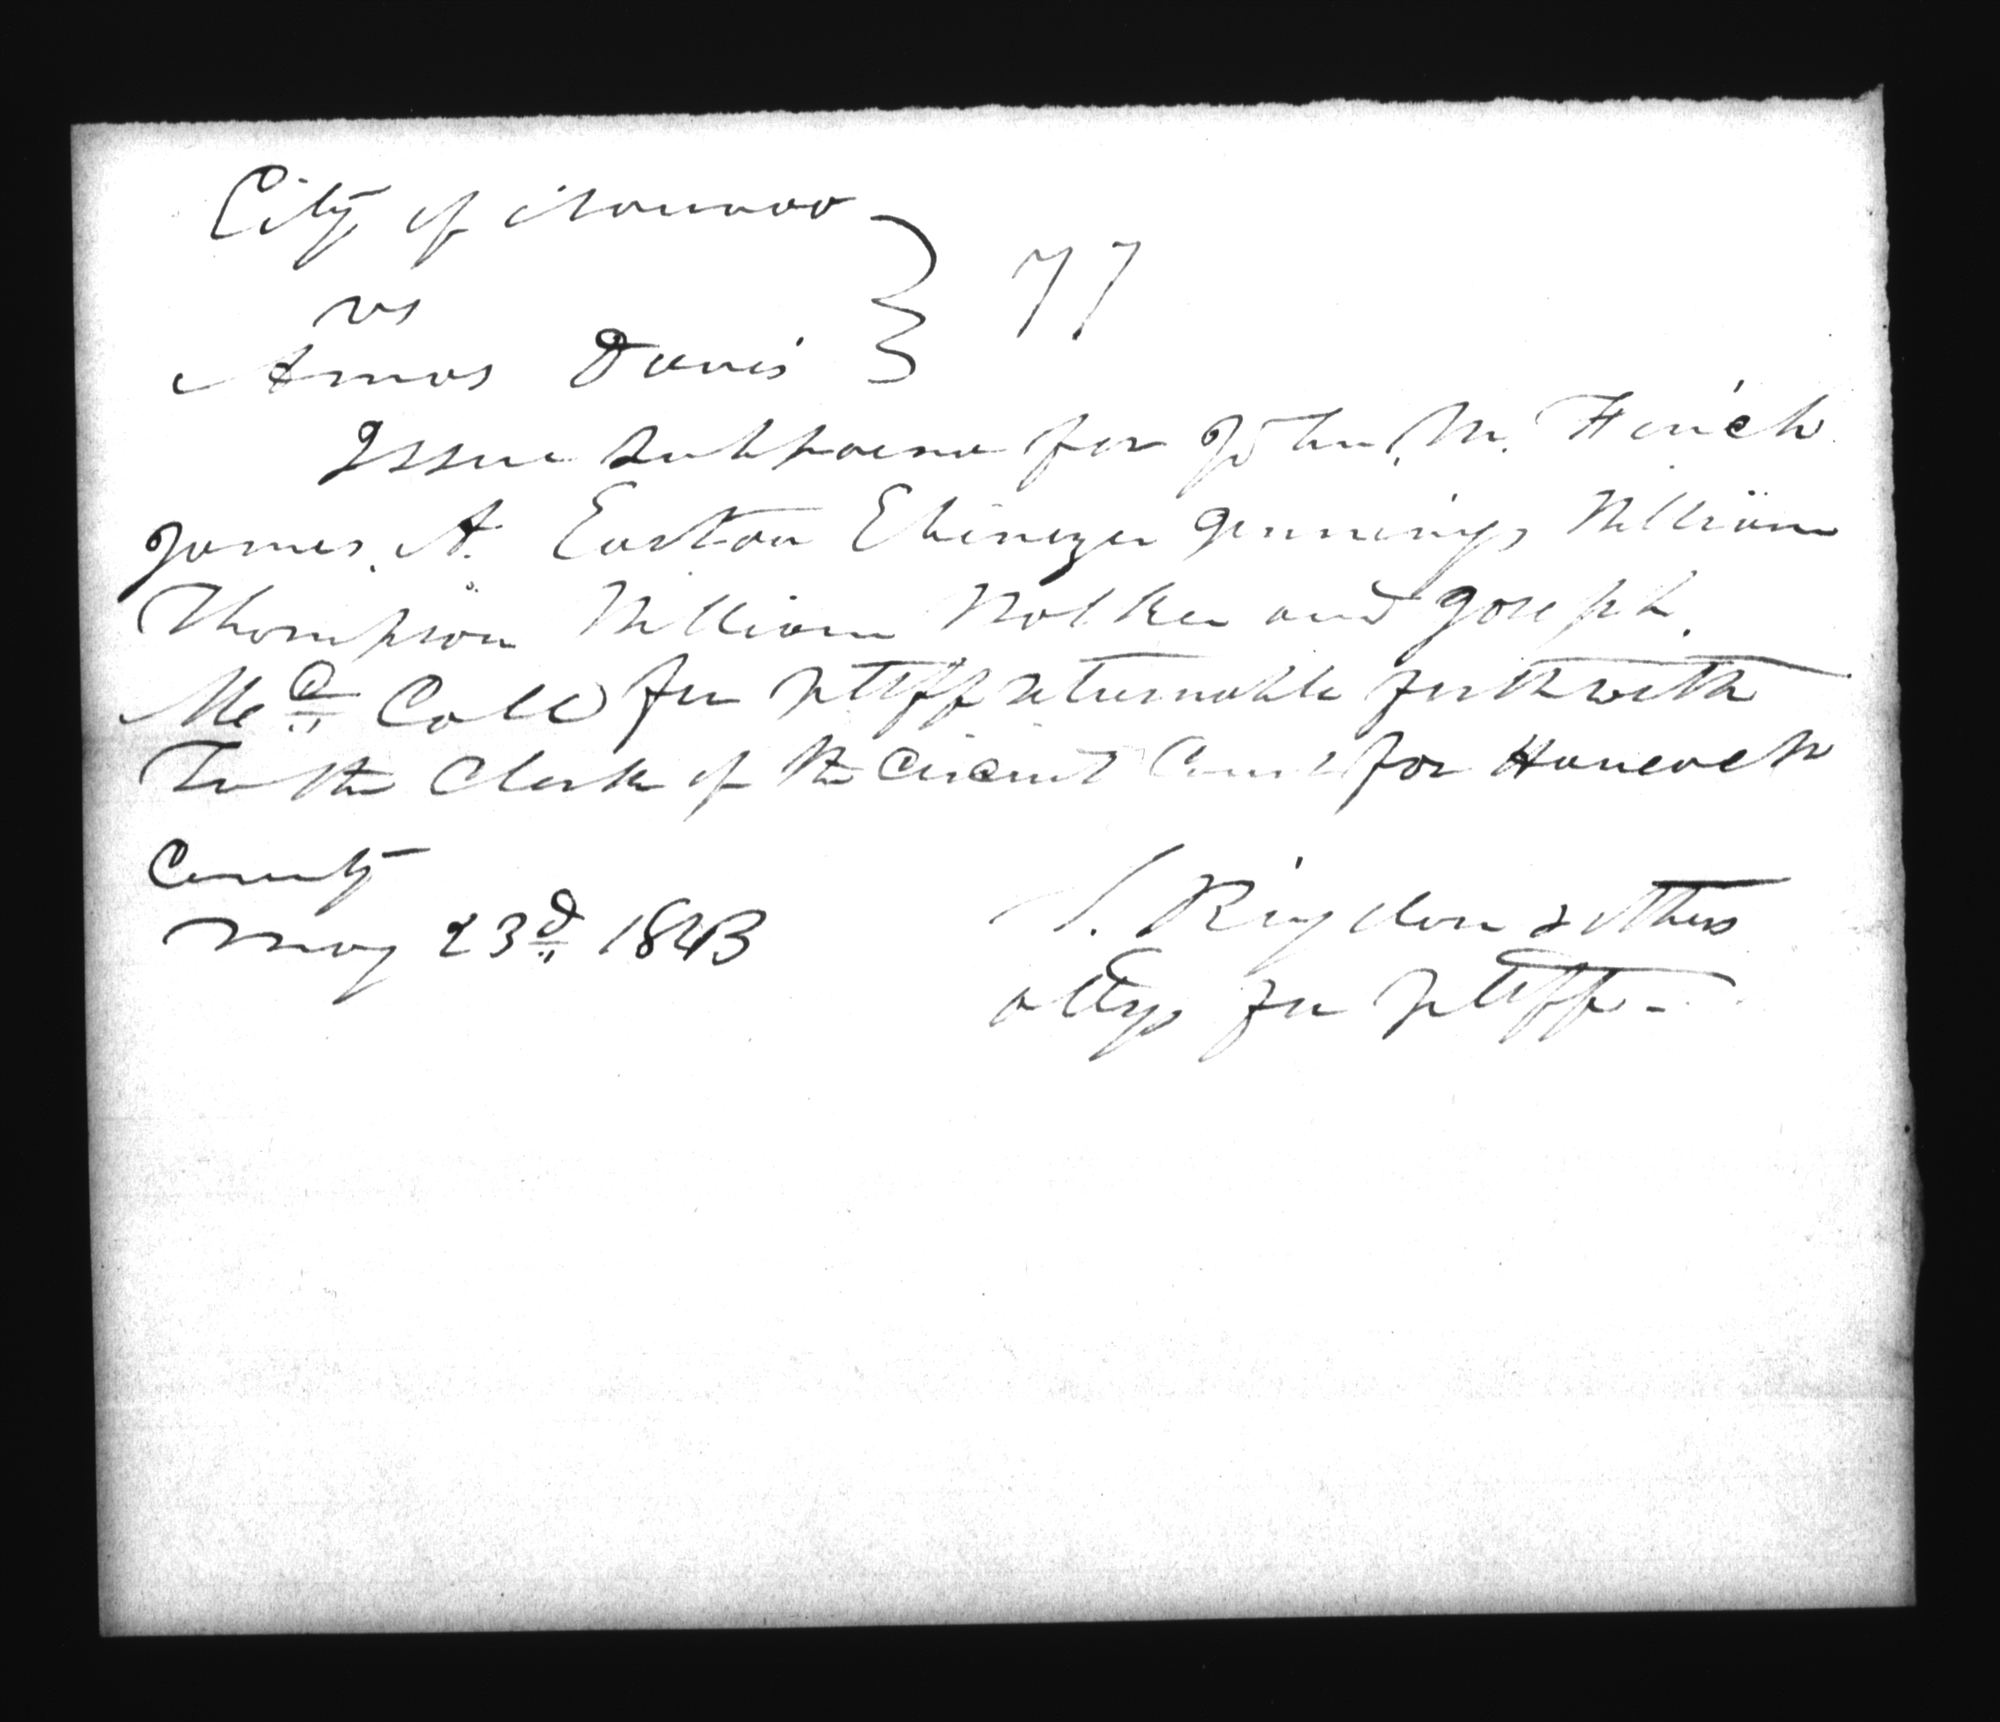 City of Nauvoo
vs } 77
Amos Davis
Issue Subpoena for John. M. Finch
James. A. Easton Ebenezer Jennings William
Thompson William Walker and Joseph.
Mc Call for pltff returnable forthwith
To the Clerk of the Circuit Court for Hancock
County
May 23d 1843
S. Rigdon & others
attys for pltff-